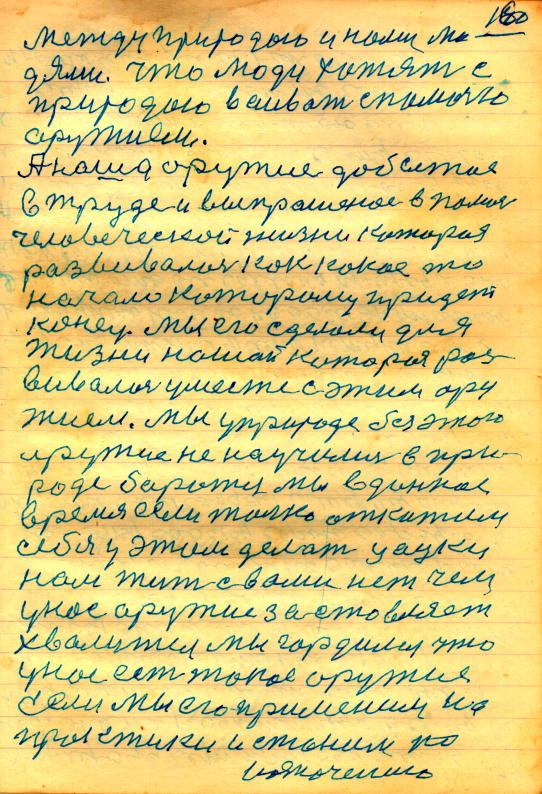 160
между природою и нами лю
дями. что люди хотят с
природою воиват спомочю
оружием.
А наша оружие добытое
в труде и выпрошеное в помоч
человеческой жизни которая
развивалоя как какое то
начало которому придет
конец. мы его сделали для
жизни нашай которая раз
вивалоя уместе с этим ору
жием. мы уприроде без этого
оружие не научился в при-
роде боротся мы вданное
время если только откажим
себя у этом делат уауки
нам жит свами нет чем
унас оружие заставляет
хвалится мы гордимся что
унас ест такое оружие
если мы его применим на
практики и станим по